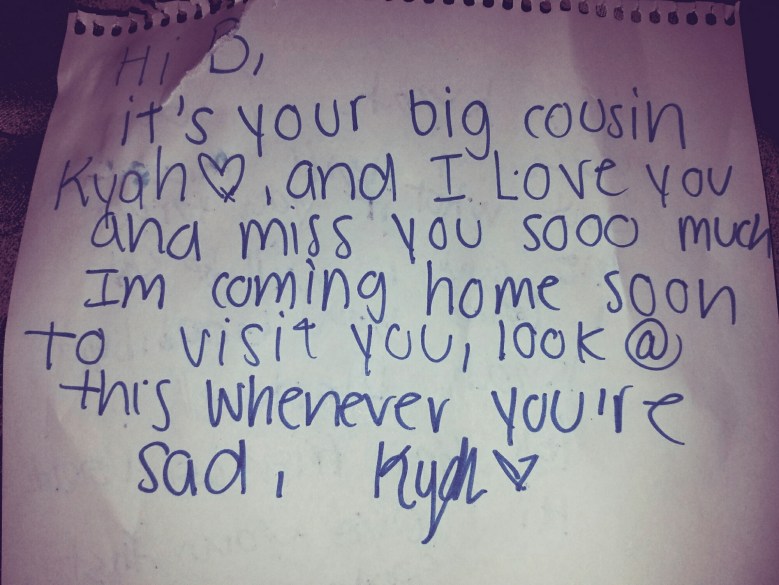 Hi B,
it's your big cousin
Kyah♡, and I Love you
and miss you sooo much
Im coming home soon
to visit you, look @
this whenever you're
sad, Kyah ♡